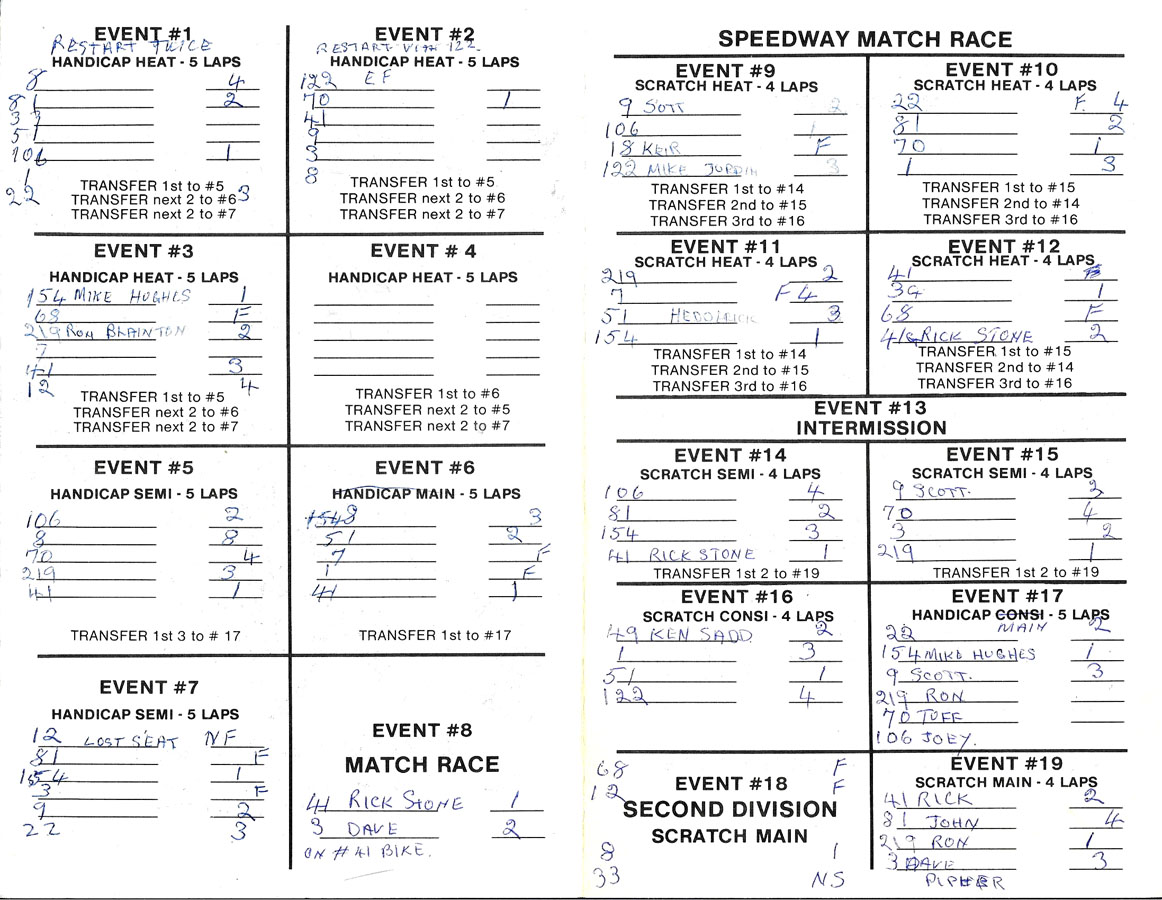 EVENT #1
RESTART TWICE
HANDICAP HEAT - 5 LAPS
8 4
81 2
33
51
106 1
1
22 3
TRANSFER 1st to #5
TRANSFER next 2 to #6
TRANSFER next 2 to #7
EVENT #2
RESTART WITH 122
HANDICAP HEAT - 5 LAPS
122 EF
70 1
41
9
3
8
TRANSFER 1st to #5
TRANSFER next 2 to #6
TRANSFER next 2 to #7
EVENT #3
HANDICAP HEAT - 5 LAPS
154 MIKE HUGHES 1
68 F
219 RON BLAINTON 2
7
41 3
12 4
TRANSFER 1st to #5
TRANSFER next 2 to #6
TRANSFER next 2 to #7
EVENT # 4
HANDICAP HEAT - 5 LAPS
TRANSFER 1st to #6
TRANSFER next 2 to #5
TRANSFER next 2 to #7
EVENT #5
HANDICAP SEMI - 5 LAPS
106 2
8 8
70 4
219 3
41 1
TRANSFER 1st 3 to # 17
EVENT #6
HANDICAP MAIN - 5 LAPS
8 3
51 2
7 F
1 F
41 1
TRANSFER 1st to #17
EVENT #7
HANDICAP SEMI - 5 LAPS
12 LOST SEAT NF
81 F
154 1
3 F
9 2
22 3
EVENT #8
MATCH RACE
41 RICK STONE 1
3 DAVE 2
ON #41 BIKE.
SPEEDWAY MATCH RACE
EVENT #9
SCRATCH HEAT - 4 LAPS
9 SOTT 2
106 1
18 KEIR F
122 MIKE JURDIN 3
TRANSFER 1st to #14
TRANSFER 2nd to #15
TRANSFER 3rd to #16
EVENT #10
SCRATCH HEAT - 4 LAPS
22 F 4
81 2
70 1
1 3
TRANSFER 1st to #15
TRANSFER 2nd to #14
TRANSFER 3rd to #16
EVENT #11
SCRATCH HEAT - 4 LAPS
219 2
7 F 4
51 3
154 1
TRANSFER 1st to #14
TRANSFER 2nd to #15
TRANSFER 3rd to #16
EVENT #12
SCRATCH HEAT - 4 LAPS
41
34 1
68 F
41 RICK STONE 2
TRANSFER 1st to #15
TRANSFER 2nd to #14
TRANSFER 3rd to #16
EVENT #13
INTERMISSION
EVENT #14
SCRATCH SEMI - 4 LAPS
106 4
81 2
154 3
41 RICK STONE 1
TRANSFER 1st 2 to #19
EVENT #15
SCRATCH SEMI - 4 LAPS
9 SCOTT. 3
70 4
3 2
219 1
TRANSFER 1st 2 to #19
EVENT #16
SCRATCH CONSI - 4 LAPS
49 KEN SADD 2
1 3
51 1
122 4
EVENT #17
HANDICAP CONSI - 5 LAPS
MAIN
22 2
154 MIKE HUGHES 1
9 SCOTT. 3
219 RON
70 TUFF
106 JOEY.
EVENT #18
SECOND DIVISION
SCRATCH MAIN
68 F
12 F
8 1
33 N.S
EVENT #19
SCRATCH MAIN - 4 LAPS
41 RICK 2
81 JOHN 4
219 RON 1
3 DAVE 3